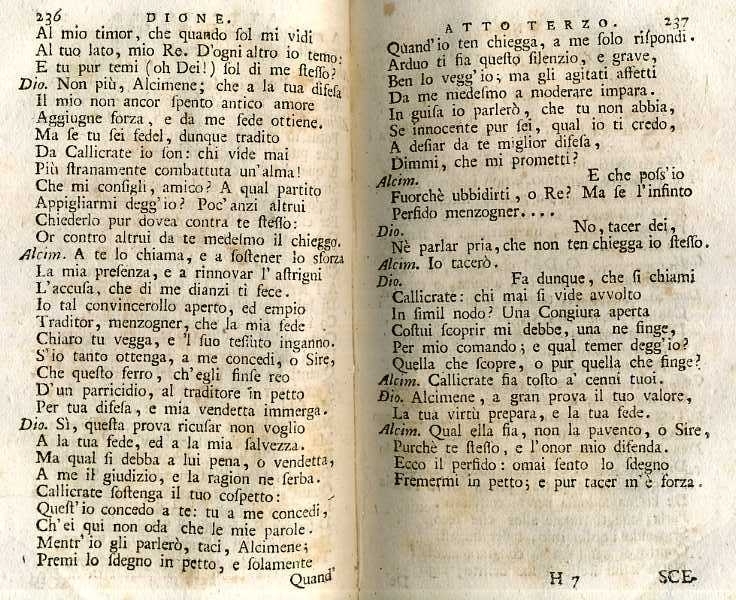 236 DIONE.
Al mio timor, che quando sol mi vidi
Al tuo lato, mio Re. D'ogni altro io temo:
E tu pur temi (oh Dei!) sol di me stesso?
Dio. Non più, Alcimene; che a la tua difesa
Il mio non ancor spento antico amore
Aggiugne forza, e da me fede ottiene.
Ma se tu sei fedel, dunque tradito
Da Callicrate io son: chi vide mai
Più stranamente combattuta un'alma!
Che mi consigli, amico? A qual partito
Appigliarmi degg'io? Poc'anzi altrui
Chiederlo pur dovea contra te stesso:
Or contro altrui da te medesmo il chieggo.
Alcim. A te lo chiama, e a sostener lo sforza
La mia presenza, e a rinnovar l'astrigni
L'accusa, che di me dianzi ti fece.
Io tal convincerollo aperto, ed empio
Traditor, menzogner, che la mia fede
Chiaro tu vegga, e 'l suo tessuto inganno.
S'io tanto ottenga, a me concedi, o Sire,
Che questo ferro, ch'egli finse reo
D'un parricidio, al traditore in petto
Per tua difesa, e mia vendetta immerga.
Dio. Sì, questa prova ricusar non voglio
A la tua fede, ed a la mia salvezza.
Ma qual si debba a lui pena, o vendetta,
A me il giudizio, e la ragion ne serba.
Callicrate sostenga il tuo cospetto:
Quest'io concedo a te: tu a me concedi,
Ch'ei qui non oda che le mie parole.
Mentr'io gli parlerò, taci, Alcimene;
Premi lo sdegno in petto, e solamente
Quand'
ATTO TERZO. 237
Quand'io ten chiegga, a me solo rispondi.
Arduo ti fia questo silenzio, e grave,
Ben lo vegg'io; ma gli agitati affetti
Da me medesmo a moderare impara.
In guisa io parlerò, che tu non abbia,
Se innocente pur sei, qual io ti credo,
A desiar da te miglior difesa,
Dimmi, che mi prometti?
Alcim. E che poss'io
Fuorchè ubbidirti, o Re? Ma se l'infinto
Perfido menzogner....
Dio. No, tacer dei,
Nè parlar pria, che non ten chiegga io stesso.
Alcim. Io tacerò.
Dio. Fa dunque, che si chiami
Callicrate: chi mai si vide avvolto
In simil nodo? Una Congiura aperta
Costui scoprir mi debbe, una ne finge,
Per mio comando; e qual temer degg'io?
Quella che scopre, o pur quella che finge?
Alcim. Callicrate fia tosto a' cenni tuoi.
Dio. Alcimene, a gran prova il tuo valore,
La tua virtù prepara, e la tua fede.
Alcim. Qual ella fia, non la pavento, o Sire,
Purchè te stesso, e l'onor mio difenda.
Ecco il perfido: omai sento lo sdegno
Fremermi in petto; e pur tacer m'è forza.
H 7 SCE-